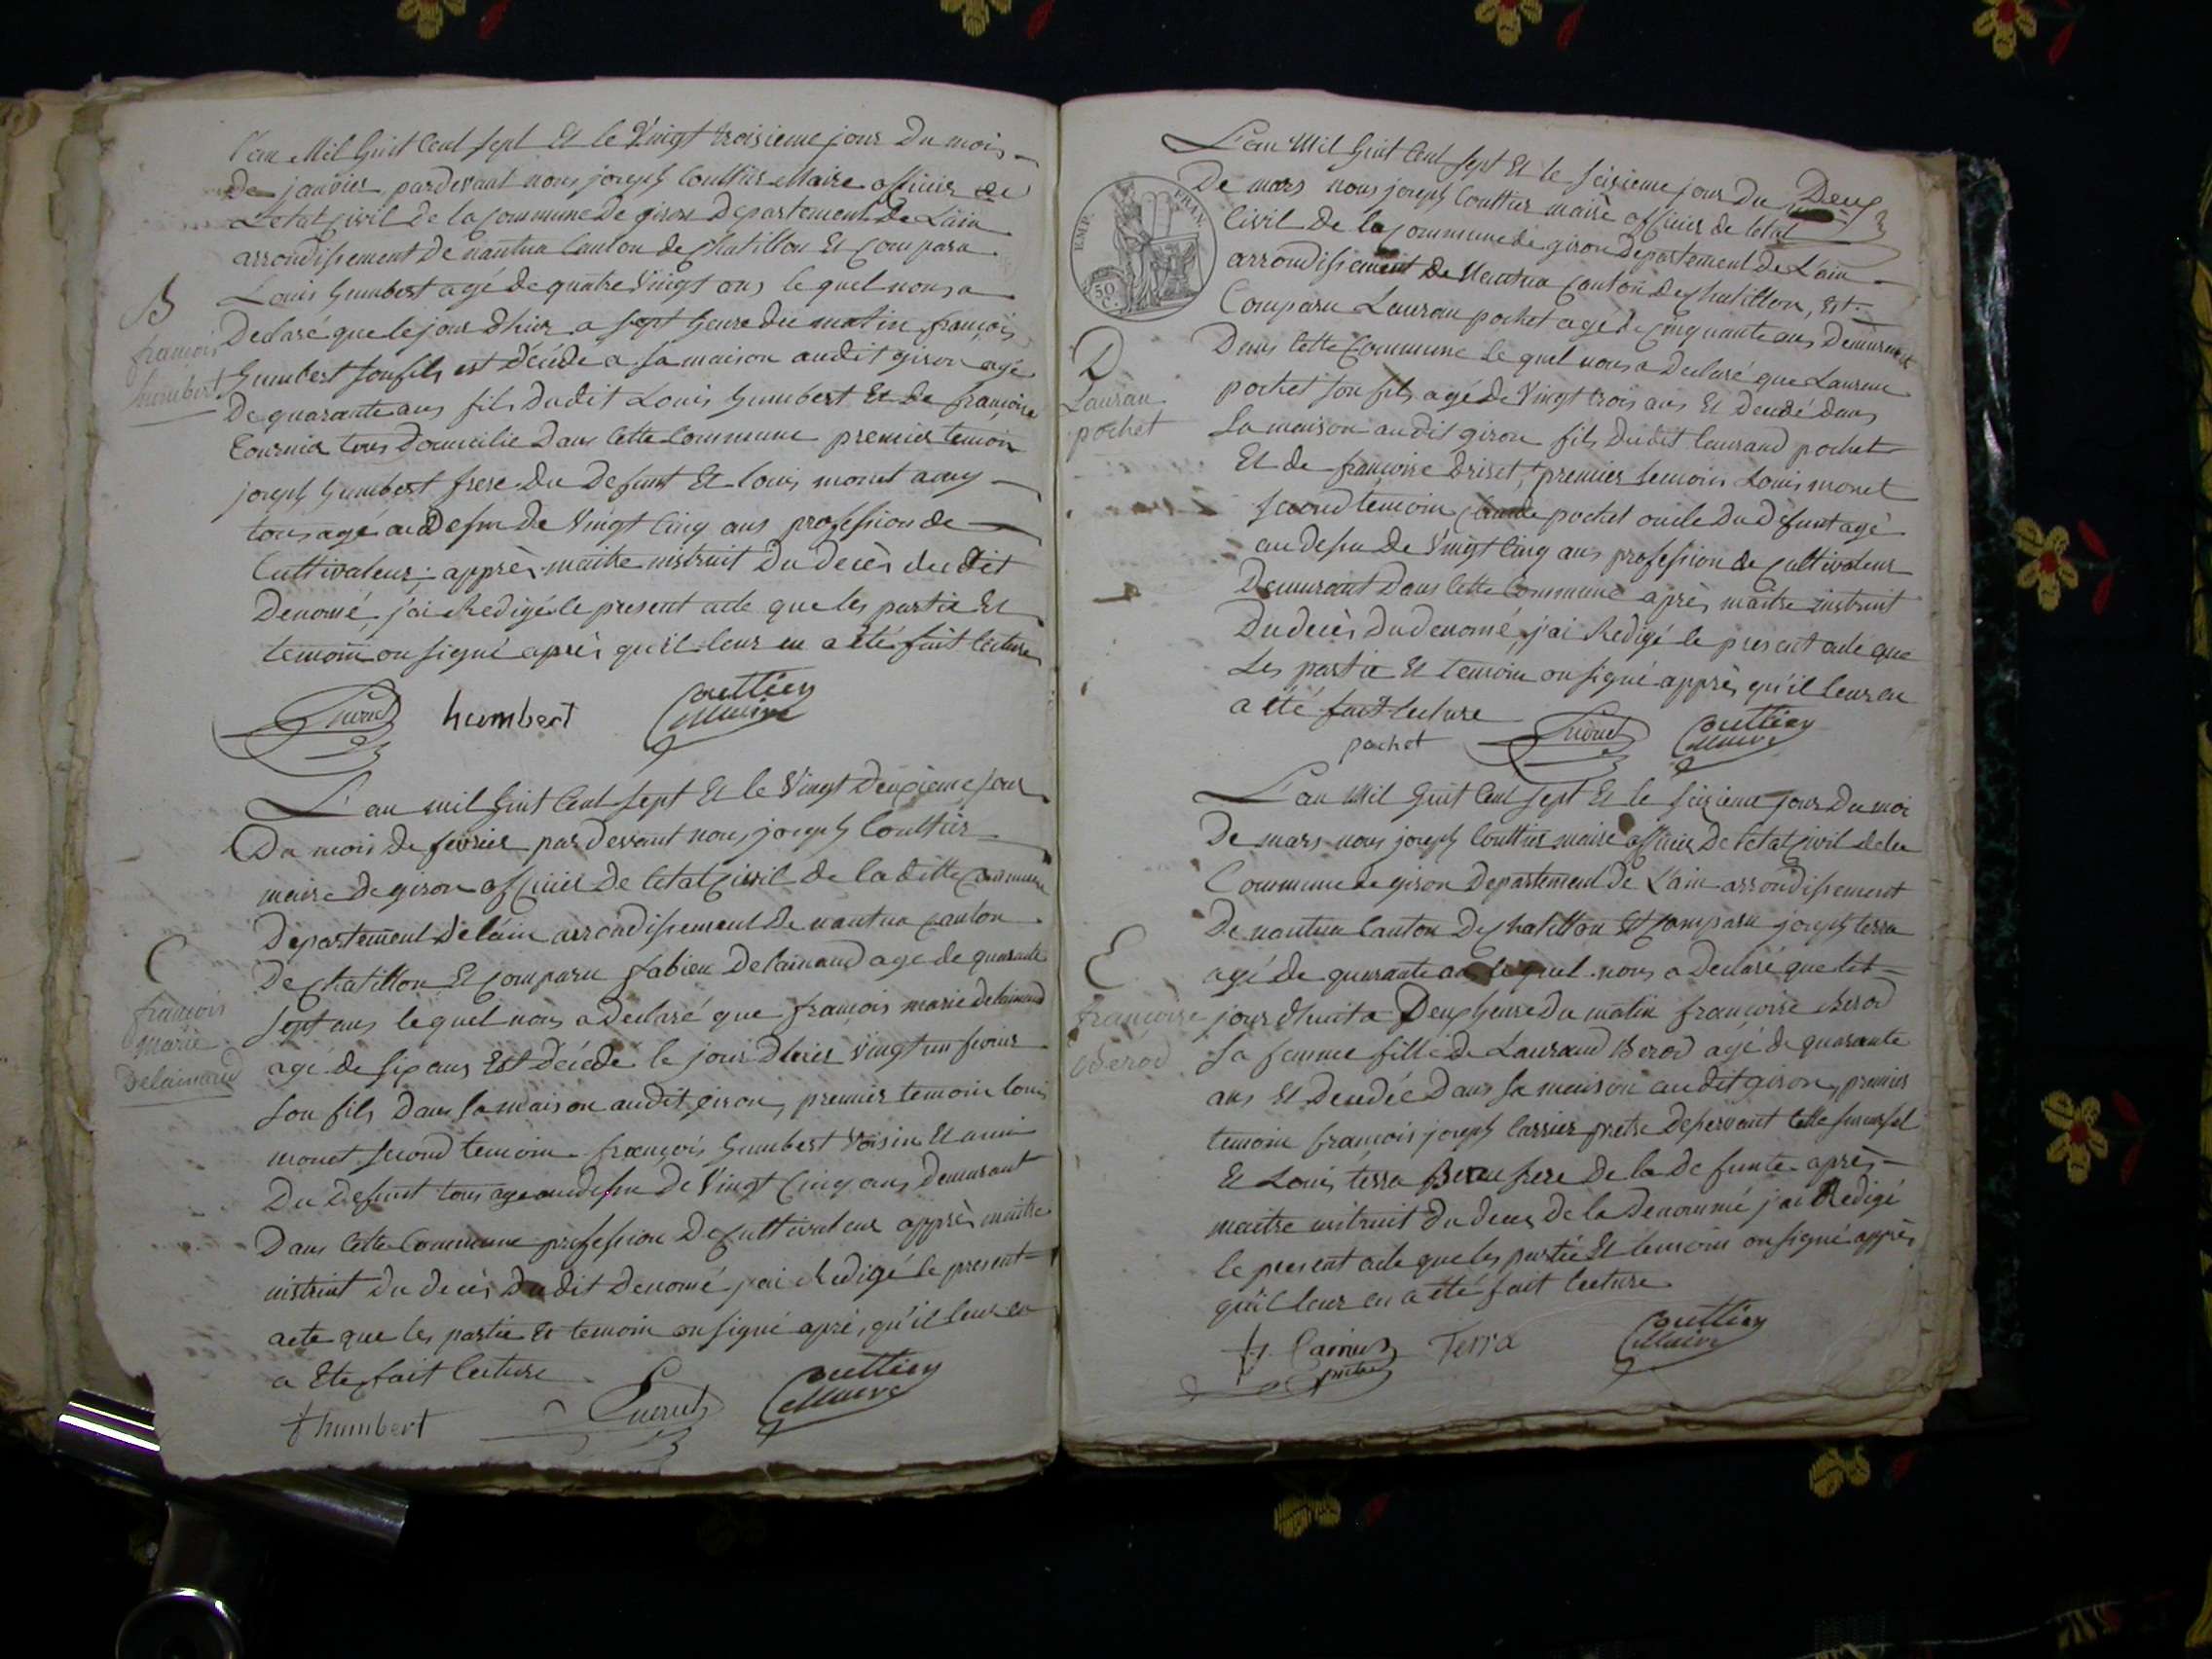 L'an Mil huit Cent sept Et le Vingt troisieme jour Du mois
De janvier pardevant nous joseph Couttier Maire officier de
L'etat Civil de la Commune De giron Departement De L'ain
arrondissement De nantua Canton de Chatillon Et Comparu
Louis humbert agé de quatre Vingt ans le quel nous a
Declaré que le jour d'hier a sept heure du matin françois
humbert son fils est décédé a sa maison audit giron agé
De quarante ans fils Dudit Louis humbert Et De françoise
tournier tous Domicilié Dans Cette Commune premier temoin
joseph humbert frere Du Defunt Et louis monet amy
tous agé audessu De Vingt Cinq ans profession de
Cultivateur; apprès maitre instruit Du decès du dit
Denomé, j'ai Redigé le present acte que les partie Et
temoin on signé après qu'il leur en a été fait lecture
B
françois
humbert
humbert
Couttier
Maire
L'an mil huit Cent sept Et le Vingt Deuxieme jour
Du mois De fevrier pardevant nous joseph Couttier
maire De giron officier De letat Civil de la ditte Commune
Departement De lain arrondissement De nantua Canton
De Chatillon Et Comparu fabien Delainaud agé de quarante
sept ans le quel nous a Declaré que francois marie delainaud
agé de six ans Est Décédé le jour D'hier Vingt un fevrier
son fils Dans la maison audit giron, premier temoin louis
monet second temoin françois humbert Voisin Et ami
Du Defunt tous agé audessu De Vingt Cinq ans Demurant
Dans Cette Commune profession De Cultivateur apprès maitre
instruit Du decès Du dit Denomé j'ai Redigé le present
acte que les partie Et temoin on signé après qu'il leur en
a Eté fait lecture
C
francois
marie
Delainaud
f humbert
Couttier
Maire
Deux
L'an Mil huit Cent sept Et le seizieme jour Du
De mars nous joseph Couttier maire officier de letat
Civil De la Commune de giron Departement De L'ain
arrondissement De Nantua Canton De Chatillon, Est
Comparu Lauran pochet agé de Cinquante ans Demurant
Dans Cette Commune le quel nous a Declaré que Lauran
pochet son fils agé De Vingt trois ans Et Decedé dans
sa maison audit giron fils Dudit laurand pochet
Et de francoise Briset, premier temoin Louis monet
second temoin Claude pochet oncle Du Defunt agé
au dessu De Vingt Cinq ans profession de Cultivateur
Demurant Dans Cette Commune après maitre instruit
Du decès Du denomé, j'ai Redigé le present acte que
Les partie Et temoin on signé apprès qu'il leur en
a été fait lecture
EMP. FRAN.
50 C.
D
Lauran
pochet
pochet
Couttier
Maire
L'an Mil huit Cent sept Et le seizieme jour Du moi
De mars nous joseph Couttier maire officier De letat Civil de la
Commune de giron Departement De L'ain arrondissement
De nantua Canton De Chatillon Et Comparu joseph terra
agé de quarante ans le quel nous a Declaré que let
jour d'huit a Deux heure Du matin francoise Berod
sa femme fille de Laurand Berod agé de quarante
ans Et Decedée Dans sa maison audit giron, premier
temoin francois joseph Carrier pretre Desservant Cette sucursal
Et Louis terra Beau frere de la De funte après
maitre instruit Du decès De la Denommé j'ai Redigé
le present acte que les partie Et temoin on signé apprès
qu'il leur en a été fait lecture
E
francoise
Berod
Terra
Couttier
Maire